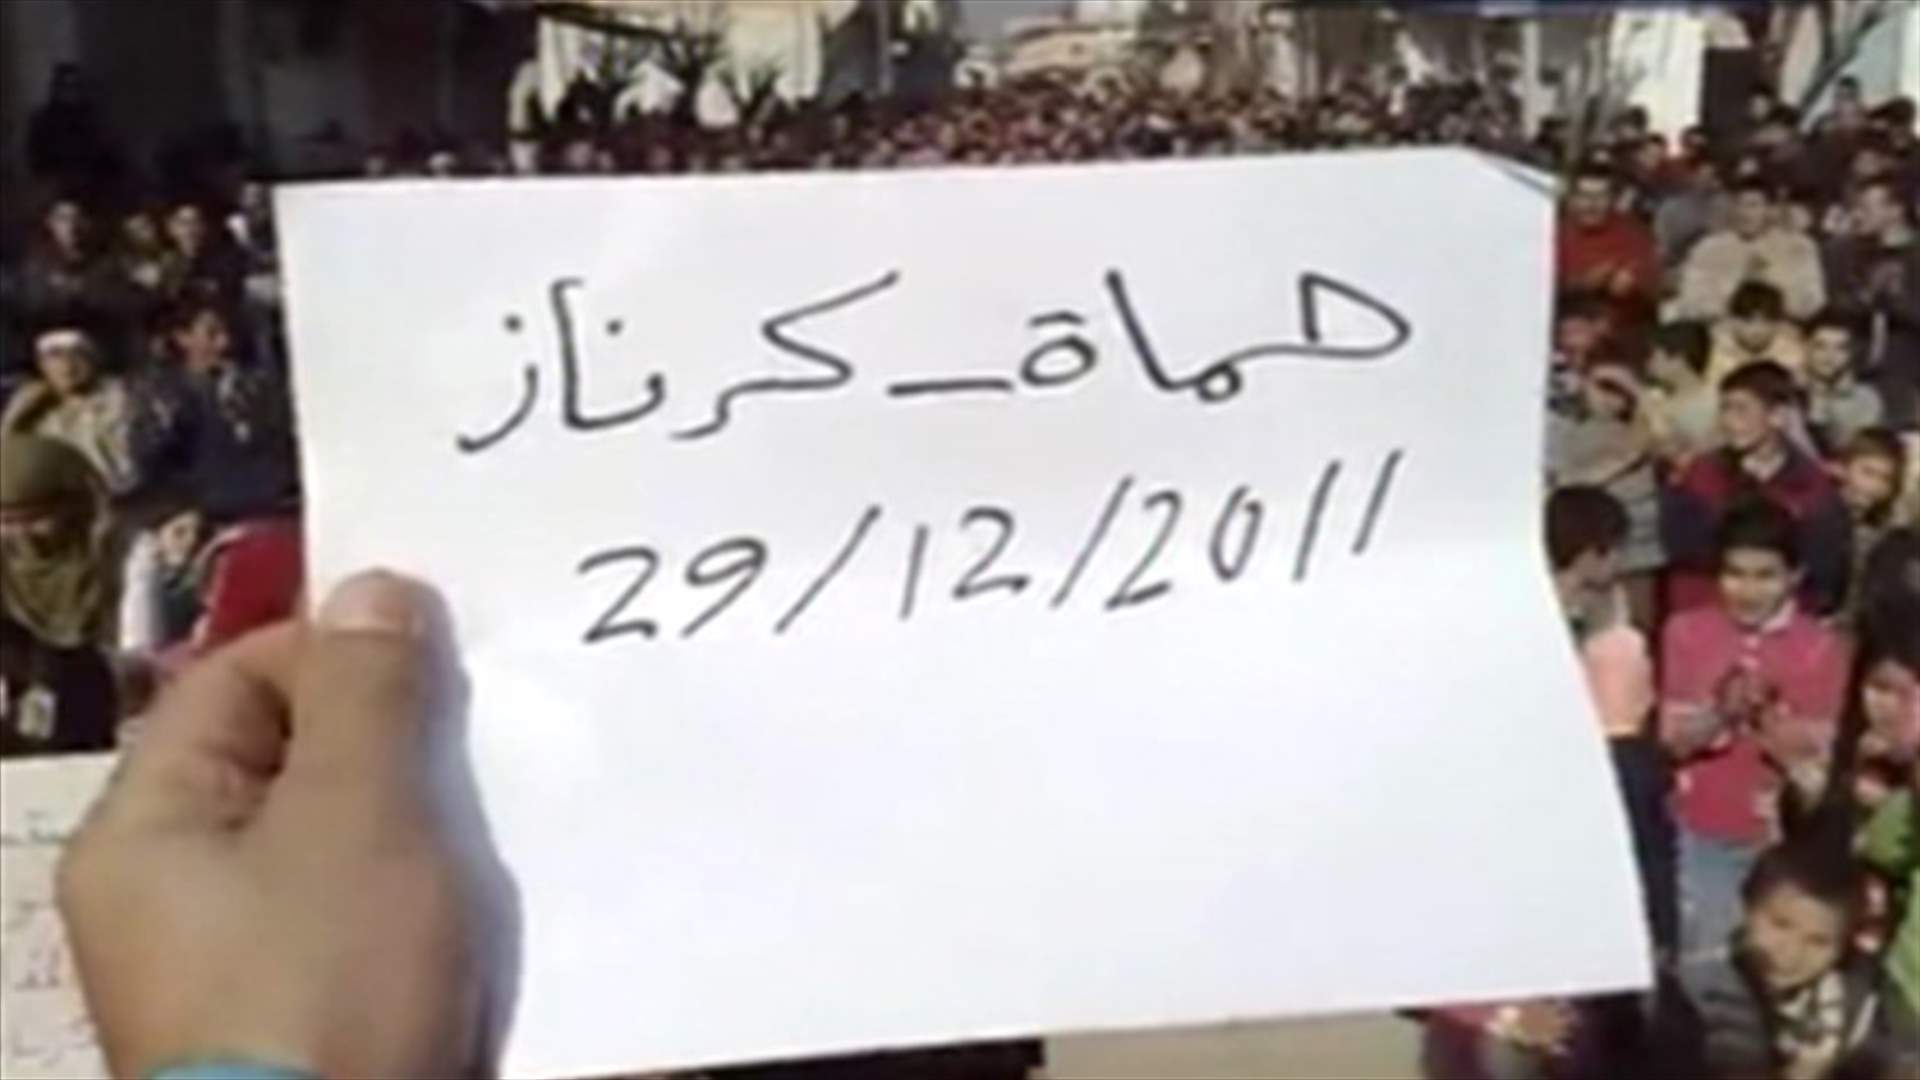 حماة_كرناز
29/12/2011